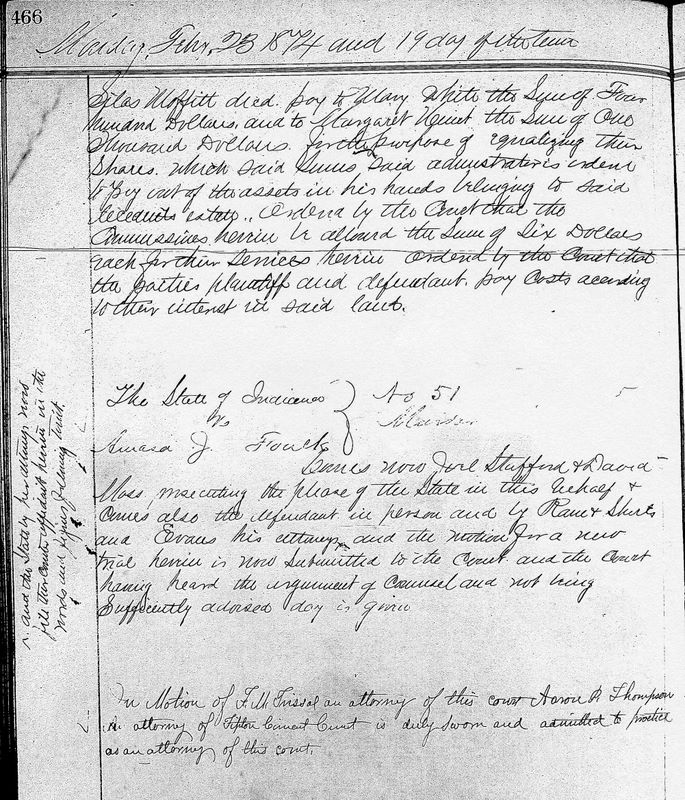 466
Monday, Febr, 23 1874 and 19 day of the term
Silas Moffitt died. pay to Mary White the Sum of Four
hundred Dollars. and to Margaret the Sum of One
Thousand Dollars. for the purpose of equalizing their
Shares. which said Sums, said administrator is ordered
to Pay out of the assets in his hands belonging to said
decedents estate., Ordered by the Court that the
Commissioners herein be allowed the Sum of Six Dollars
each for their Services herein Ordered by the Court that
the parties plaintiff and defendant. pay Costs according
to their interest in said land.
The State of Indiana } No 51 5
vs Murder
Amasa J. Fouch
Comes now Joel Stafford & David
Moss, prosecuting the of the State in this behalf &
Comes also the defendant in person and by & Shirts
and Evans his attorneys and the motion for a new
trial herein is now Submitted to the Court. and the Court
having heard the argument of Counsel and not being
Sufficiently advised day is given
On Motion of F. M. Trissal an attorney of this court Aaron R Thompson
an attorney of Tipton Circuit Court is duly sworn and admitted to practice
as an attorney of this court.
and the State by her attorneys now
file the Counter affidavit herein in the
words and figures following towit.